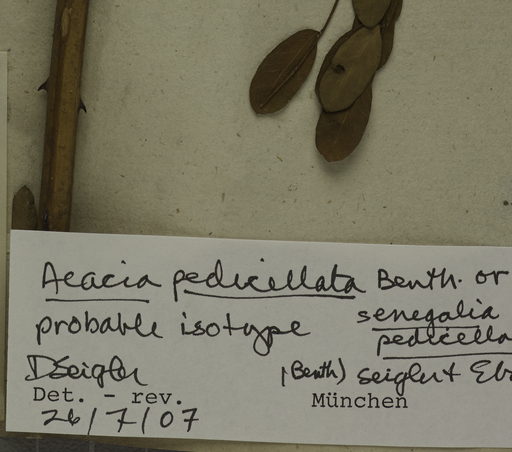 Acacia pedicellata Benth. or
probable isotype senegalia
pedicella
DSeigler (Benth) seigler + Eb
Det. - rev. München
26/7/07